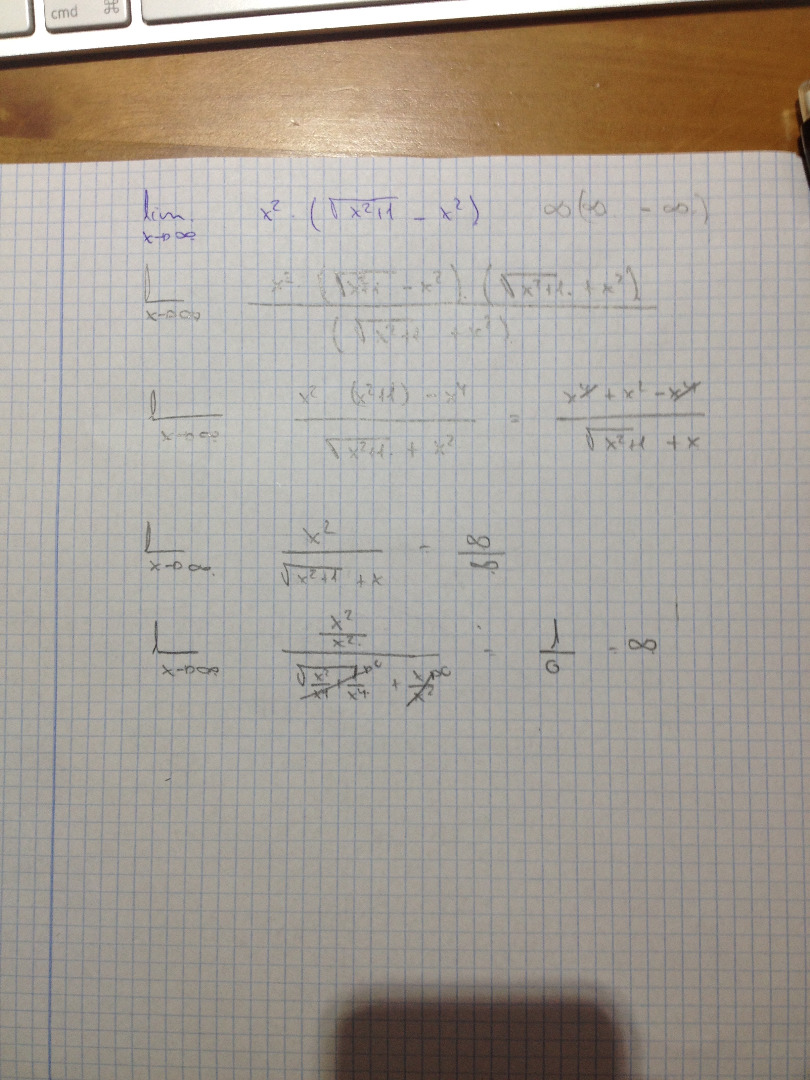 cmd ⌘
lim x→∞ x² · (√(x²+1) - x²) ∞(∞ - ∞)
l x→∞ x² · (√(x²+1) - x²) · (√(x²+1) + x²) / (√(x²+1) + x²)
l x→∞ x² (x²+1) - x⁴ / √(x²+1) + x² = x⁴ + x² - x⁴ / √(x²+1) + x
l x→∞ x² / √(x²+1) + x - ∞/∞
l x→∞ x²/x² / √(x²/x⁴ + 1/x⁴) →0 + x/x² →0 = 1/0 = ∞